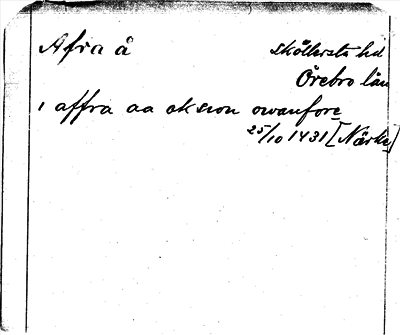 Afra å Sköllersta hd
Örebro län
i affra aa oksron owanfore
25/10 1431 [Närke]